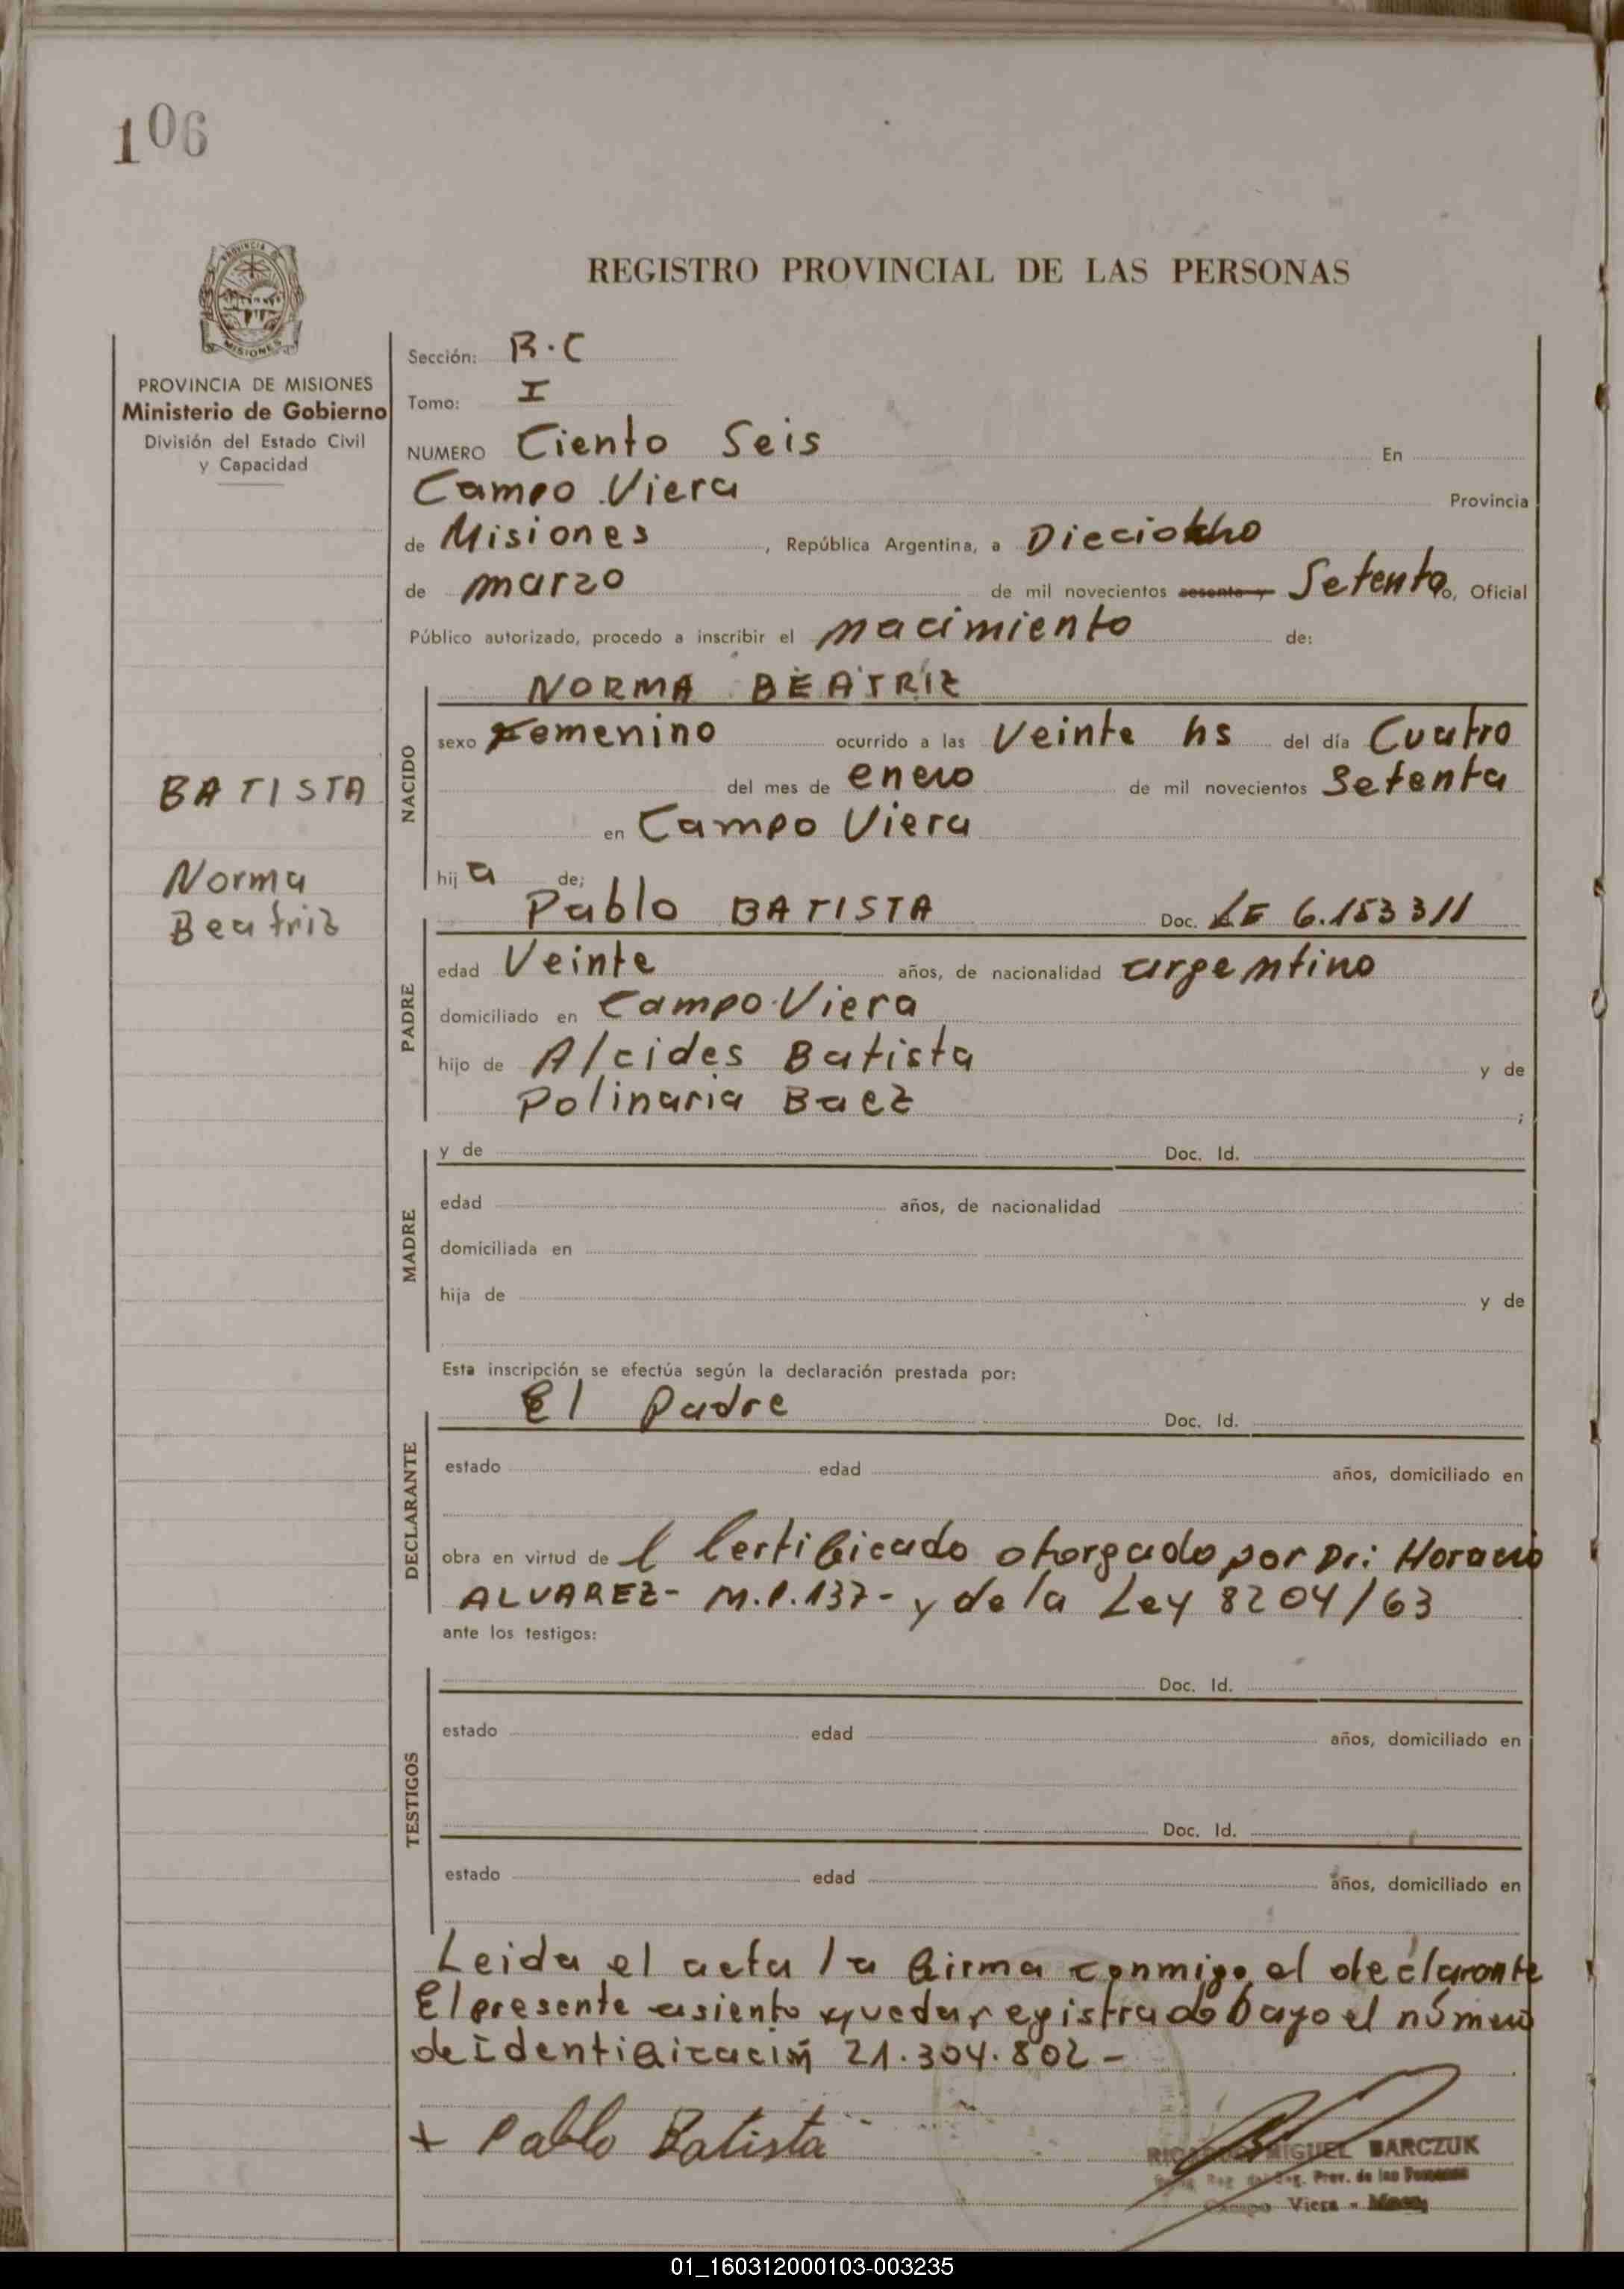 106
PROVINCIA
MISIONES
REGISTRO PROVINCIAL DE LAS PERSONAS
PROVINCIA DE MISIONES
Ministerio de Gobierno
División del Estado Civil
y Capacidad
Sección: R.C
Tomo: I
NUMERO Ciento Seis En
Campo Viera Provincia
de Misiones, República Argentina, a Dieciocho
de marzo de mil novecientos sesenta y Setenta, Oficial
Público autorizado, procedo a inscribir el nacimiento de:
BATISTA
Norma
Beatriz
NACIDO
NORMA BEATRIZ
sexo Femenino ocurrido a las Veinte hs del día Cuatro
del mes de enero de mil novecientos Setenta
en Campo Viera
hija de;
PADRE
Pablo BATISTA Doc. LE 6.153311
edad Veinte años, de nacionalidad argentino
domiciliado en Campo Viera
hijo de Alcides Batista y de
Polinaria Baez ;
MADRE
y de Doc. Id.
edad años, de nacionalidad
domiciliada en
hija de y de
Esta inscripción se efectúa según la declaración prestada por:
DECLARANTE
El Padre Doc. Id.
estado edad años, domiciliado en
obra en virtud de l Certificado otorgado por Dr: Horacio
ALVAREZ - M.P.137 - y de la Ley 8204/63
ante los testigos:
TESTIGOS
Doc. Id.
estado edad años, domiciliado en
Doc. Id.
estado edad años, domiciliado en
Leida el acta la firma conmigo el declarante
El presente asiento queda registrado bayo el número
de identificación 21.304.802 -
+ Pablo Batista
RICARDO MIGUEL BARCZUK
Reg. Prov. de las Personas
Campo Viera - Mnes.
01_160312000103-003235